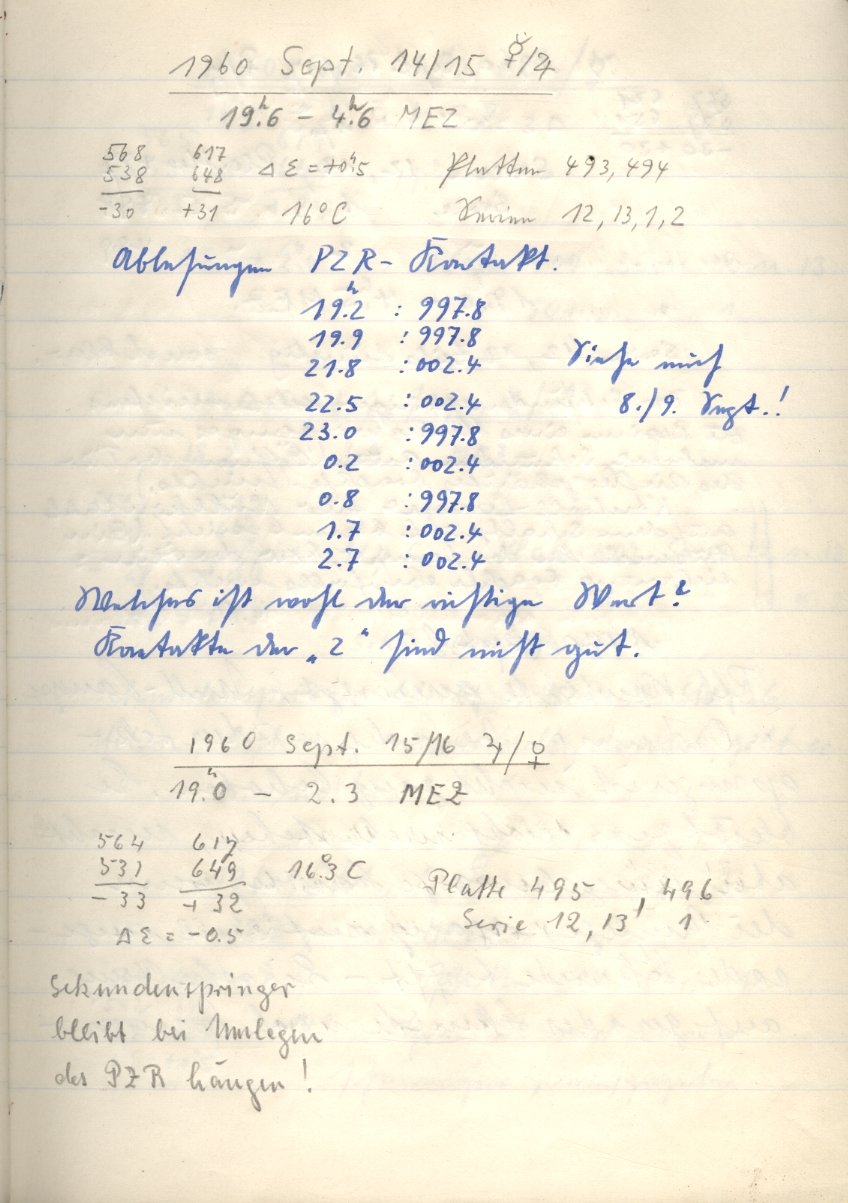 1960 Sept. 14/15 ☿/♃
19ʰ.6 – 4ʰ.6 MEZ
568 617 Δ Ɛ = +0ʰ.5 Platten 493, 494
538 648
-30 +31 16°C Serien 12, 13, 1, 2
Ablesungen PZR – Kontakt.
19ʰ.2 : 997.8
19.9 : 997.8
21.8 : 002.4 Siehe auch
22.5 : 002.4 8./9. Sept.!
23.0 : 997.8
0.2 : 002.4
0.8 : 997.8
1.7 : 002.4
2.7 : 002.4
Welches ist wohl der richtige Wert?
Kontakte der „2“ sind nicht gut.
1960 Sept. 15/16 ♃/♀
19ʰ.0 – 2.3 MEZ
564 617
531 649 16°.3 C Platte 495, 496
-33 +32 Serie 12, 13, 1
Δ Ɛ = -0.5
Sekundenspringer
bleibt bei Umlegen
des PZR hängen!